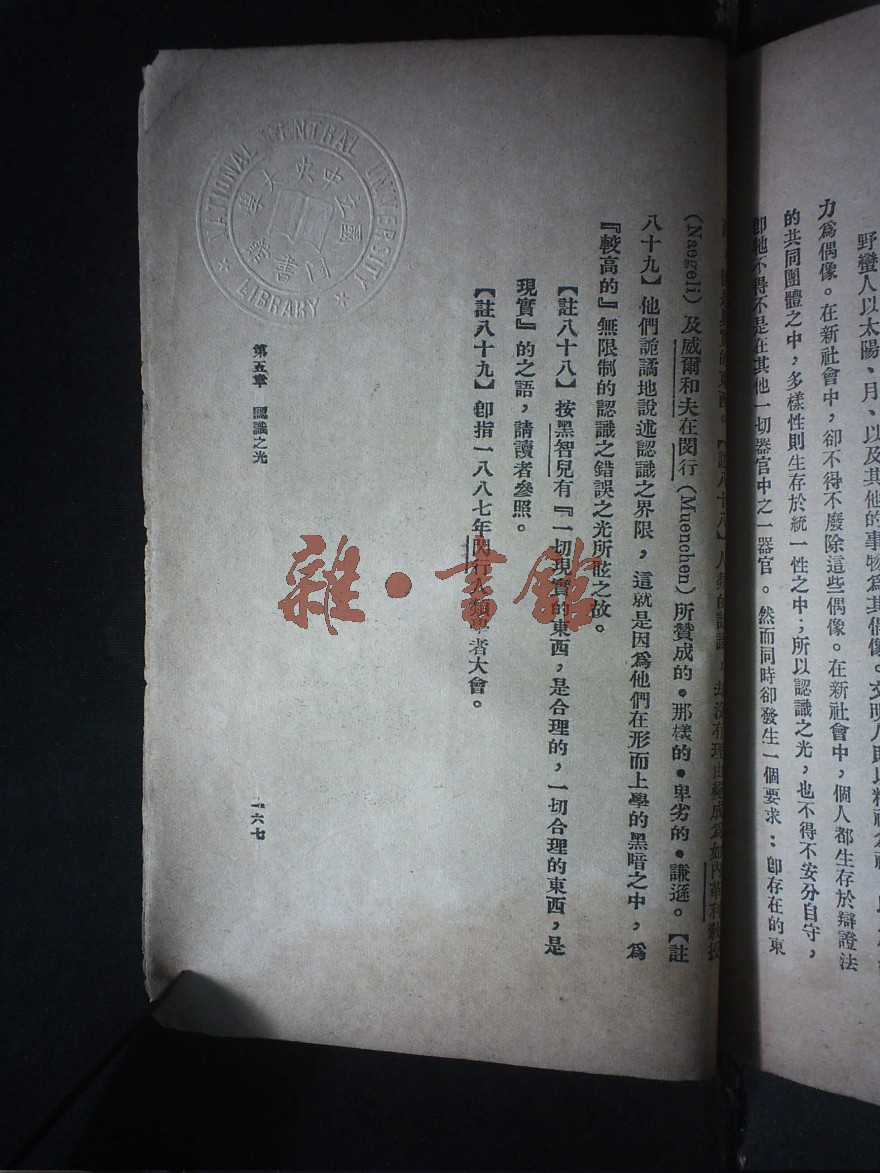 野蠻人以太陽、月、以及其他的事物為其偶像。文明人則以精神為神
力為偶像。在新社會中，卻不得不廢除這些偶像。在新社會中，個人都生存於辯證法
的共同團體之中，多樣性則生存於統一性之中；所以認識之光，也不得不安分自守，
卽牠不得不是在其他一切器官中之一器官。然而同時卻發生一個要求：卽存在的東
【註八十八】人類的認識，却沒有理由
（Naegeli）及威爾和夫在閔行（Muenchen）所贊成的●那樣的●卑劣的●謙遜。【註
八十九】他們詭譎地說述認識之界限，這就是因為他們在形而上學的黑暗之中，為
『較高的』無限制的認識之錯誤之光所眩之故。
【註八十八】按黑智兒有『一切現實的東西，是合理的，一切合理的東西，是
現實』的之語，請讀者參照。
【註八十九】卽指一八八七年閔行人類學者大會。
第五章 認識之光
一六七
NATIONAL CENTRAL UNIVERSITY
LIBRARY
國立中央大學
圖書館
雜·書館